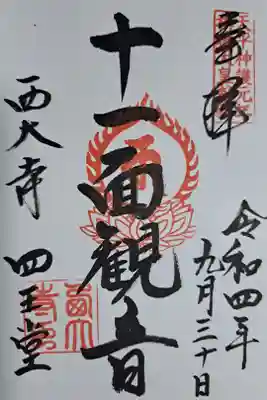 奉拝
令和四年
九月三十日
十一面観音
西大寺 四王堂